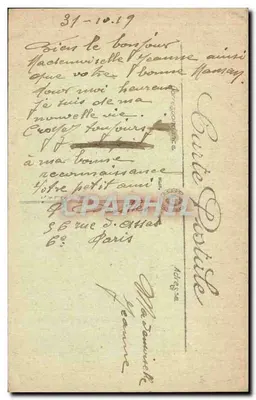 31-10-19
le bonjour
Mademoiselle Jeanne ainsi
que votre bonne Maman
Pour moi heureux
je suis de ma
nouvelle vie.
Croyez toujours
à ma bonne
reconnaissance
Votre petit ami
36 rue d'Assas
6e Paris
Mademoiselle
Jeanne
Carte Postale
Correspondance
Adresse
CPAPHIL